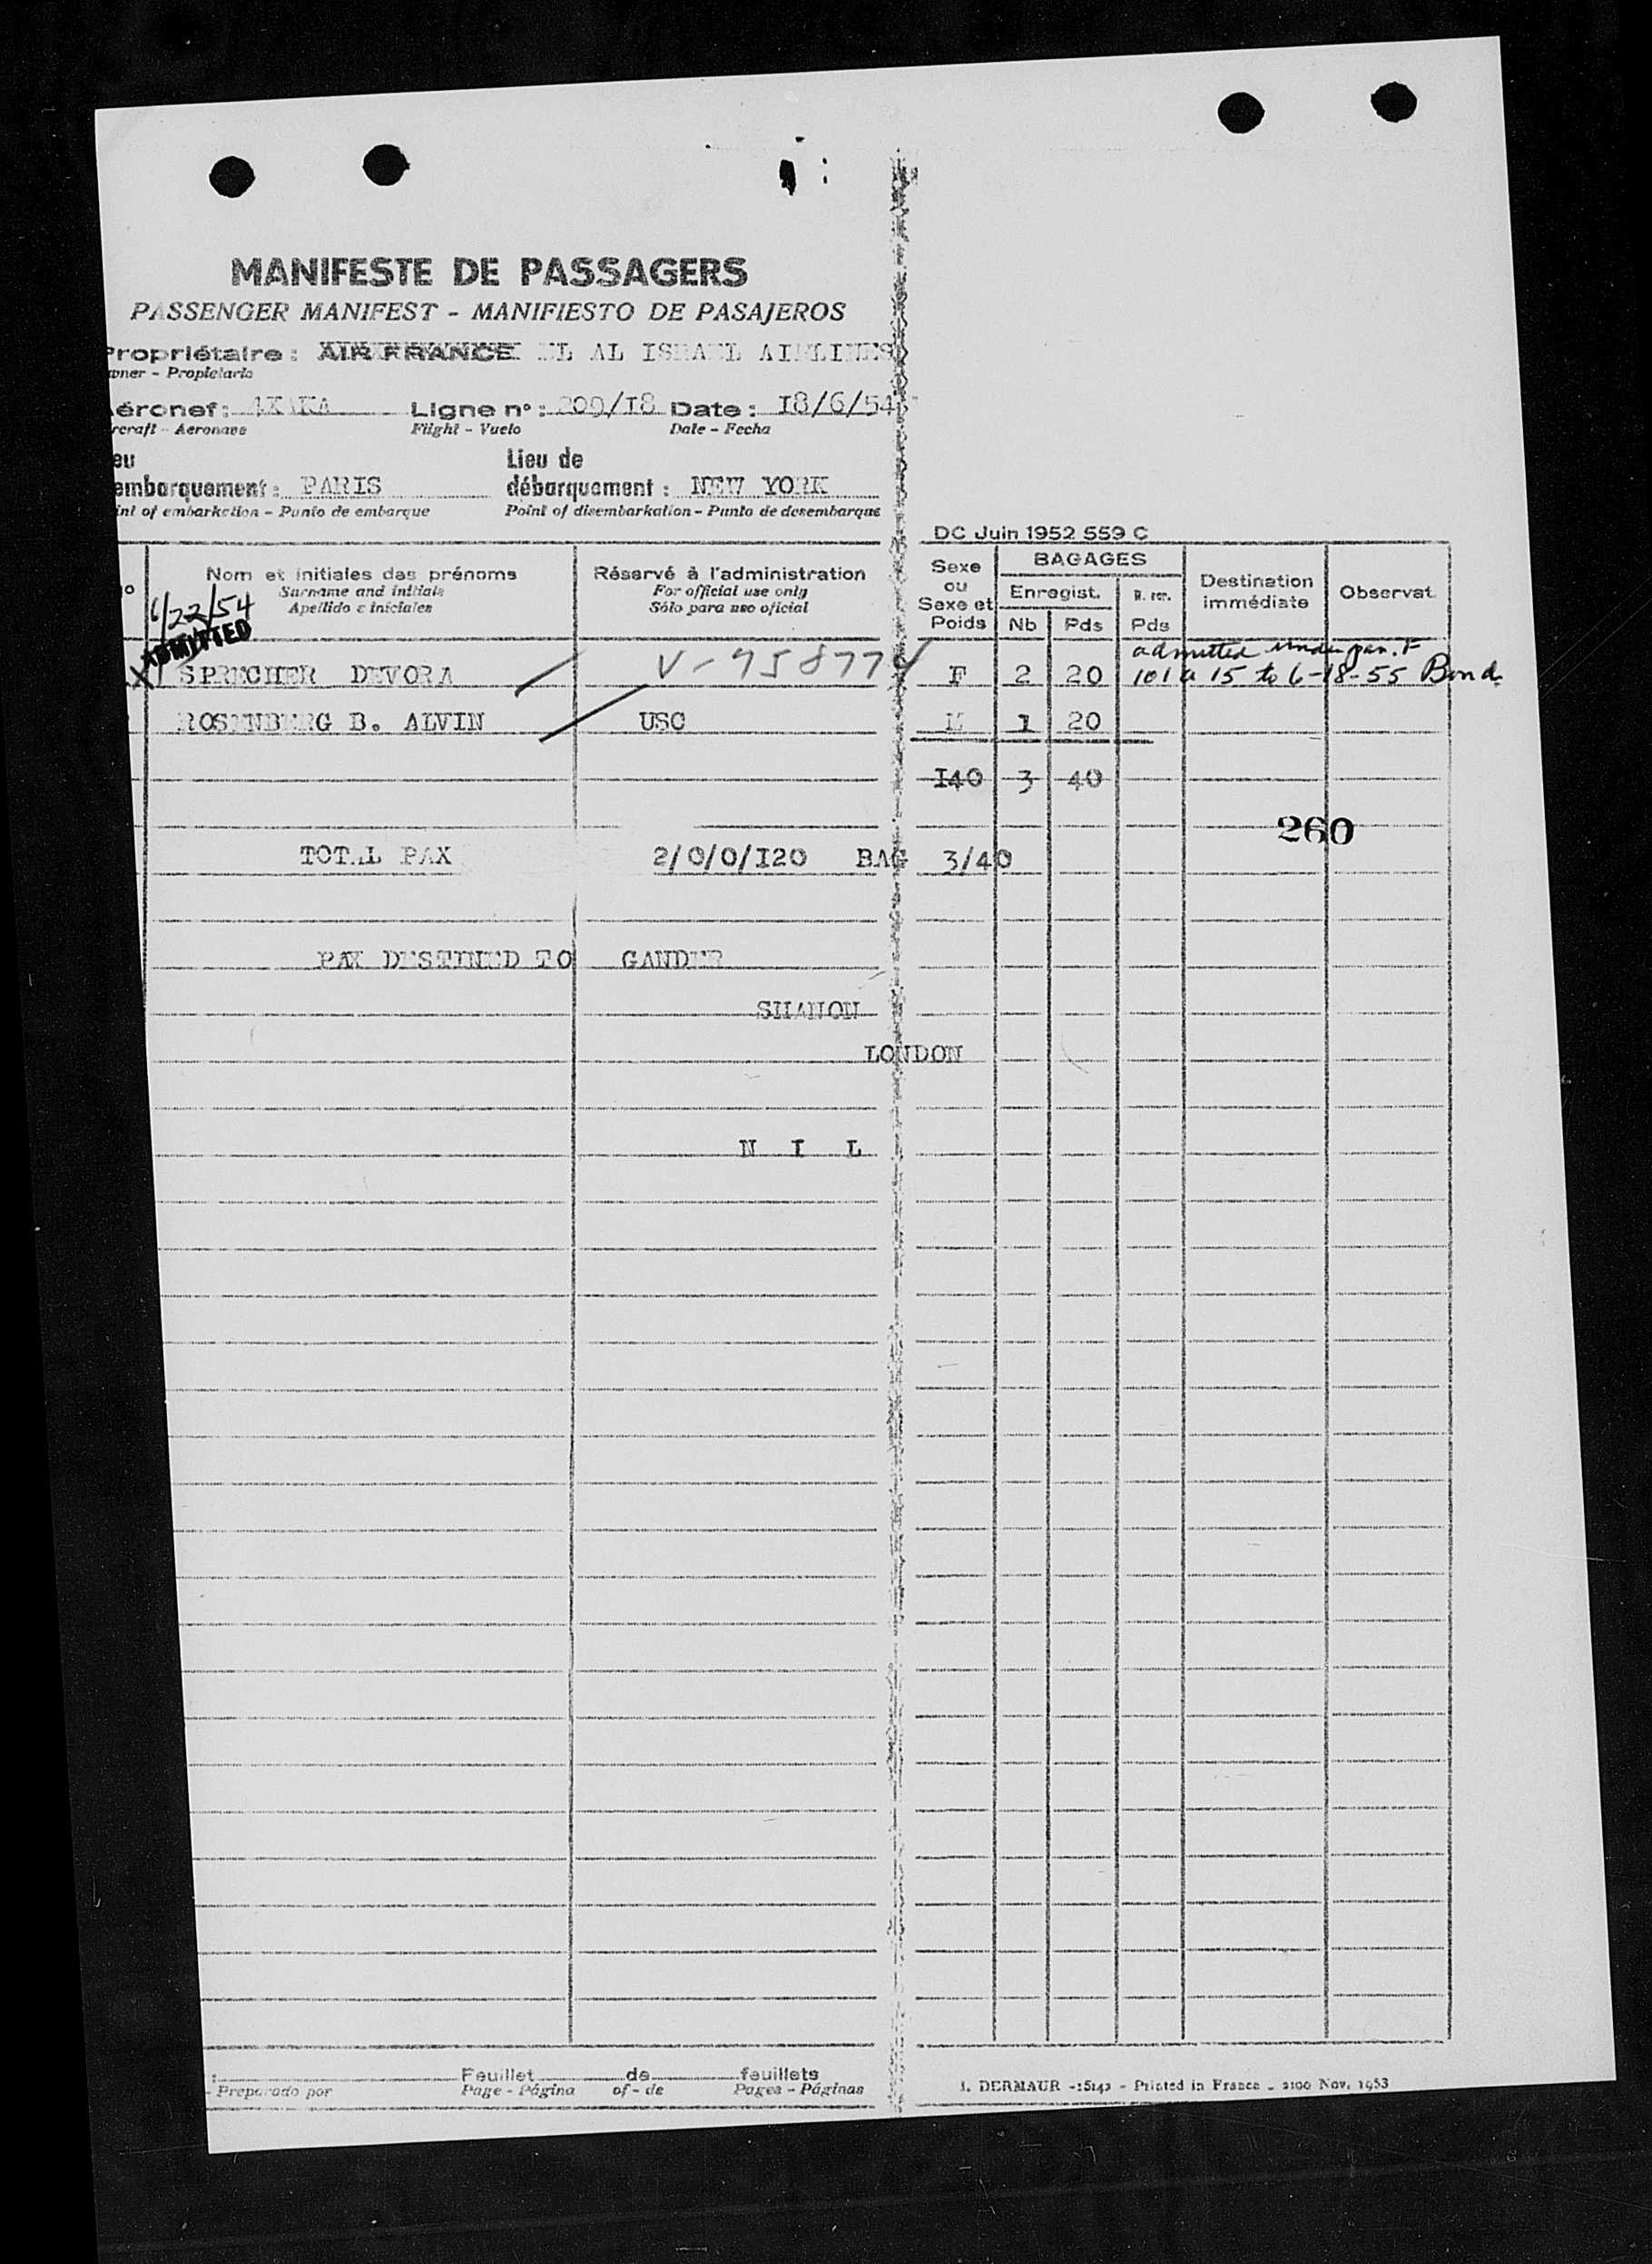 MANIFESTE DE PASSAGERS
PASSENGER MANIFEST - MANIFIESTO DE PASAJEROS
Propriétaire : AIR FRANCE EL AL ISRAEL AIRLINES
wner - Propietario
éronef : 4XAKA Ligne n° : 209/I8 Date : I8/6/54
rcraft - Aeronave Flight - Vuelo Date - Fecha
eu Lieu de
embarquement : PARIS débarquement : NEW YORK
int of embarkation - Punto de embarque Point of disembarkation - Punto de desembarque
DC Juin 1952 559 C
o Nom et initiales des prénoms Réservé à l'administration Sexe ou Sexe et Poids BAGAGES Destination immédiate Observat.
Surname and initials For official use only Enregist.
Apellido e iniciales Sólo para uso oficial Nb Pds Pds
6/22/54
ADMITTED
admitted under par. F
X SPRECHER DEVORA V-958774 F 2 20 101 a 15 to 6-18-55 Bond
ROSENBERG B. ALVIN USC M 1 20
I40 3 40
260
TOTAL PAX 2/0/0/I20 BAG 3/40
PAX DESTINED TO GANDER
SHANON
LONDON
N I L
: Feuillet de feuillets
- Preparado por Page - Página of - de Pages - Páginas
I. DERMAUR - 15142 - Printed in France - 2100 Nov. 1953